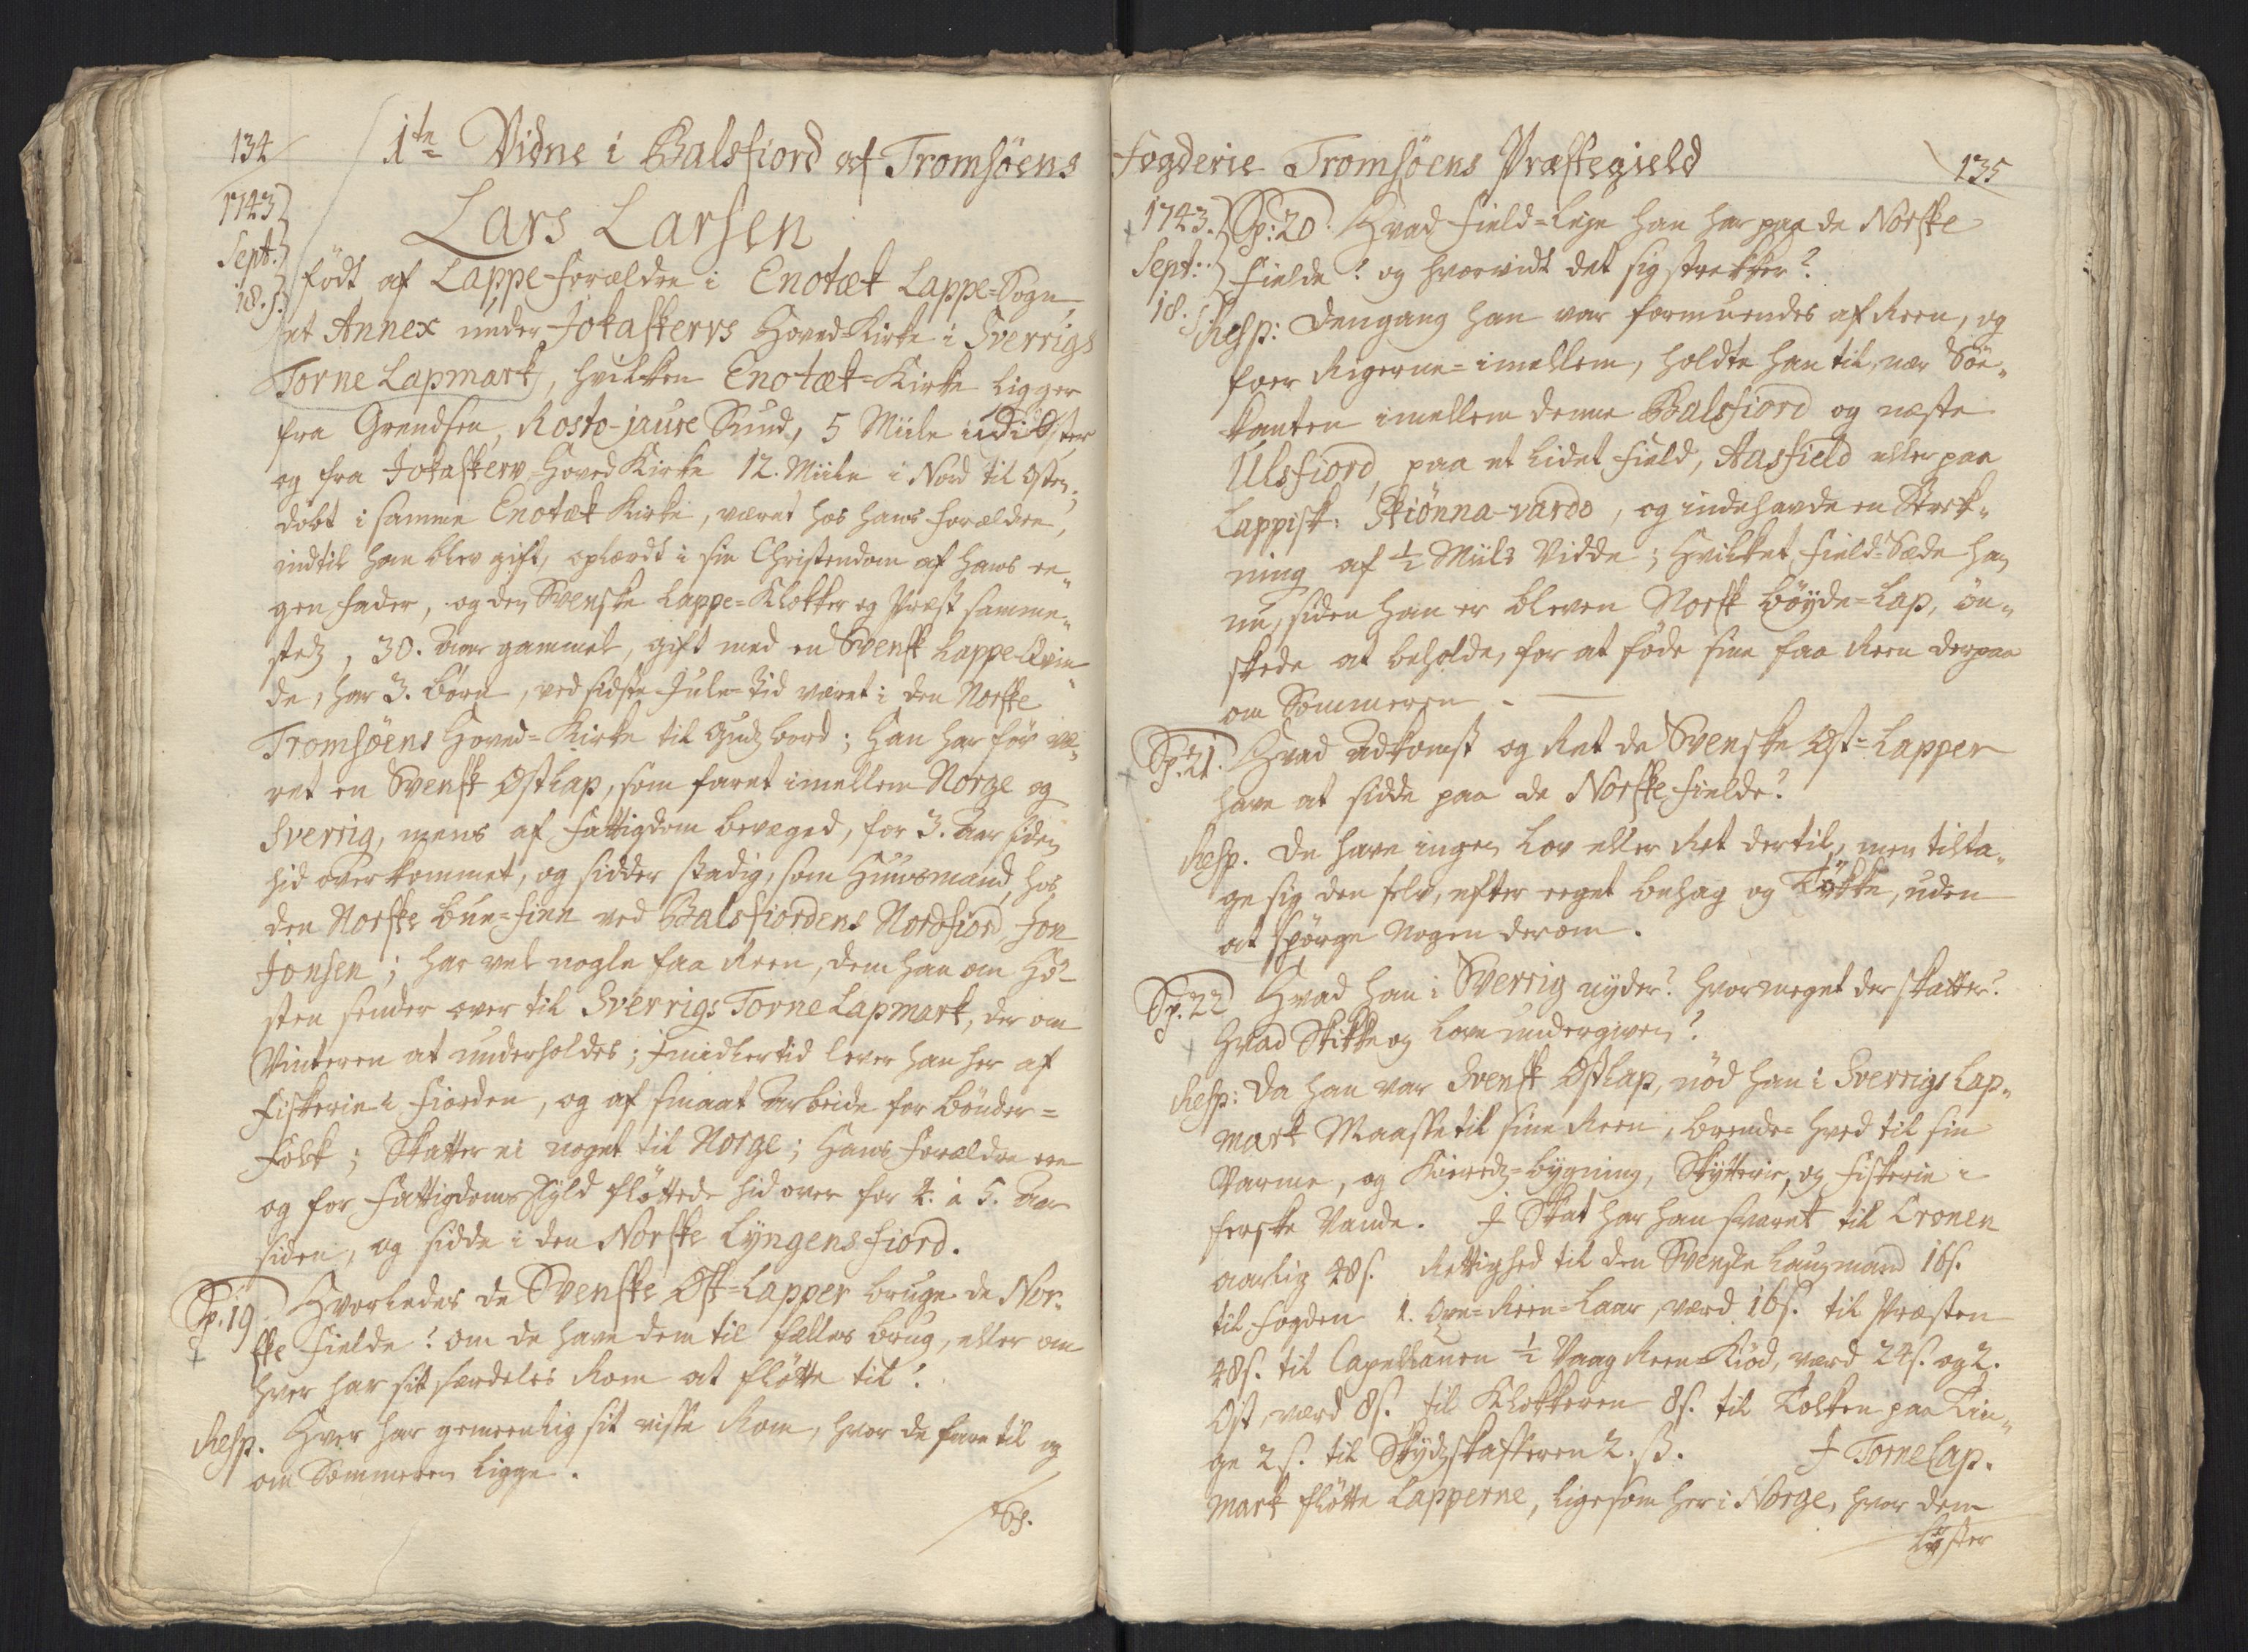 134
1te Vidne i Balsfiord af Tromsöens
1743
Sept:
18.
Lars Larsen
födt af Lappe-Forældre i Enotæk Lappe-Sogn,
et Annex under Jokaskervs Hoved-Kirke i Sverrigs
Torne Lapmark, hvilken Enotæk-Kirke ligger
fra Grendsen, Rosto-jaure Sund, 5 Miile i Öster
og fra Jokaskerv Hoved Kirke 12. Miile i Nord til Osten;
döbt i samme Enotæk Kirke, været hos hans Forældre,
indtil han blev gift, oplærdt i sin Christendom af hans ee„
gen Fader, og den Svenske Lappe-Klokker og Præst samme„
stedz, 30. Aar gammel, gift med en Svensk Lappe Qvin„
de, har 3. Börn, ved sidste Jule-Tid været i den Norske
Tromsöens Hoved-Kirke til Gudz bord; Han har för væ„
ret en Svensk Östlap, som faret imellem Norge og
Sverrig, mens af Fattigdom bevæged, for 3. Aar siden
hid overkommet, og sidder stadig, som Huusmand, hos
den Norske Bue-Finn ved Balsfiordens Nordfiord, Jon
Jonsen; har vel nogle faa Reen, dem han om Hö-
sten sender over til Sverrigs Torne Lapmark, der om
Vinteren at underholdes; Imidlertid lever han her af
Fiskerie i Fiorden, og af smaat Arbeide for Bönder=
Folk; Skatter ei noget til Norge; Hans Forældre ere
og for Fattigdoms Skyld flöttede hid over for 4. à 5. Aar
siden, og sidde i den Norske Lyngens fiord.
Sp. 19 Hvorledes de Svenske Öst-Lapper bruge de Nor-
ske Fielde? om de have dem til fælles brug, eller om
hver har sit særdeles Rom at flötte til?
Resp. Hver har gemeenlig sit visse Rom, hvor de fare til og
om Sommeren ligge.
Sp.
Fogderie Tromsöens Præstegield
135
1743.
Sept:
18.
Sp: 20. Hvad Field-Leje han har paa de Norske
Fielde? og hvorvidt det sig strekker?
Resp: Dengang han var formuendes af Reen, og
foer Rigerne-imellem, holdte han til, nær Söe„
kanten imellem denne Balsfiord og næste
Ulsfiord, paa et Lidet Field, Aasfield eller paa
Lappisk: Skiönna-vardo, og indehavde en Strek„
ning af ½ Miils Vidde; Hvilket Field-Sæde han
nu, siden han er bleven Norsk Böyde-Lap, ön„
skede at beholde, for at föde sine faa Reen derpaa
om Sommeren.
Sp. 21. Hvad Adkomst og Ret de Svenske Öst-Lapper
have at sidde paa de Norske Fielde?
Resp. De have ingen Lov eller Ret dertil, men tilta„
ge sig den selv, efter eeget behag og Tÿkke, uden
at spörge nogen derom.
Sp. 22 Hvad han i Sverrig nyder? hvormeget der skatter?
Hvad Skikke og Love undergiven?
Resp: Da han var Svensk Östlap, nöd han i Sverrigs Lap„
mark Maasse til sine Reen, brende-hved til sin
Varme, og Kieredz-bÿgning, Skÿtterie, og Fiskerie i
ferske Vande. I Skat har han svaret til Cronen
aarlig 48 s. Rettighed til den Svenske Laugmand 16 s.
til Fogden 1. Oxe-Reen-Laar, værd 16 s. til Præsten
48 s. til Capellanen ½ Vaag Reen-Kiöd, værd 24 s. og 2.
Ost, værd 8 s. til Klokkeren 8 s. til Tolken paa Tin„
ge 2 s. til Skydzskafferen 2. s. I Torne Lap„
mark flötte Lapperne, ligesom her i Norge, hvor dem
Lÿster